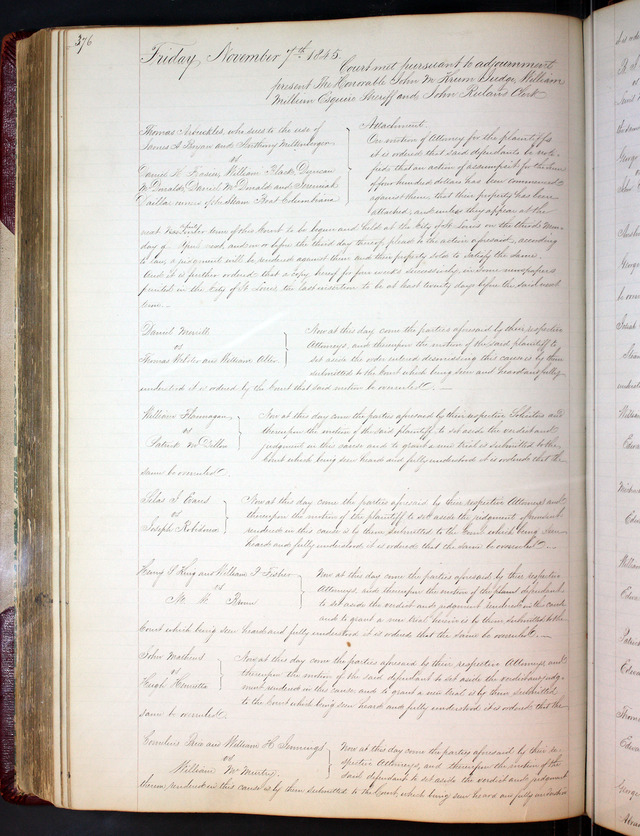 376
Friday, November 7th 1845
Court met pursuant to adjournment
present The Honorable John M Krum Judge, William
Milburn Esquire Sheriff and John Ruland Clerk
Thomas Arbuckles, who sues to the use of
James A Bryan and Anthony Miltenberger
vs
Daniel H. Frasier, William Flack, Duncan
McDonald, Daniel McDonald and Jeremiah
owners of the Steam Boat Columbiana
Attachment
On motion of Attorney for the plaintiffs
it is ordered that said defendants be noti-
fied that an action of assumpsit for the sum
of four hundred dollars has been commenced
against them, that their property has been
attached, and unless they appear at the
next April term of this Court to be begun and held at the City of St Louis on the third Mon-
day of April next and on or before the third day thereof, plead to the action aforesaid, according
to law, a judgment will be rendered against them and their property sold to satisfy the same.
And it is further ordered that a copy hereof for four weeks successively, in some newspaper
printed in the City of St Louis, the last insertion to be at least twenty days before the said next
term.
Daniel Merritt
vs
Thomas Webster and William Allen
Now at this day come the parties aforesaid by their respective
Attorneys, and thereupon the motion of the said plaintiff to
set aside the order entered dismissing this cause is by them
submitted to the Court which being seen and heard and fully
understood it is ordered by the Court that said motion be overruled.
William Flannagan
vs
Patrick McDillon
Now at this day come the parties aforesaid by their respective Solicitors and
thereupon the motion of the said plaintiff, to set aside the verdict and
judgment in this cause and to grant a new trial is submitted to the
Court which being seen heard and fully understood it is ordered that the
same be overruled.
Silas J. Evans
vs
Joseph Robidoux
Now at this day come the parties aforesaid by their respective Attorneys and
thereupon the motion of the plaintiff to set aside the judgment
rendered in this cause is by them submitted to the Court which being seen
heard and fully understood it is ordered that the same be overruled.
Henry S. King and William P. Fisher
vs
Now at this day come the parties aforesaid by their respective
Attorneys, and thereupon the motion of the defendant
to set aside the verdict and judgment rendered in this cause,
and to grant a new trial herein is by them submitted to the
Court which being seen heard and fully understood it is ordered that the same be overruled.
John Mathews
vs
Hugh
Now at this day come the parties aforesaid by their respective Attorneys and
thereupon the motion of the said defendant to set aside the verdict and judg-
ment rendered in this cause and to grant a new trial is by them submitted
to the Court which being seen heard and fully understood it is ordered that the
same be overruled.
Cornelius and William H Jennings
vs
William
Now at this day come the parties aforesaid by their re-
spective Attorneys, and thereupon the motion of the
said defendant to set aside the verdict and judgment
therein rendered in this cause is by them submitted to the Court, which being seen heard and fully understood